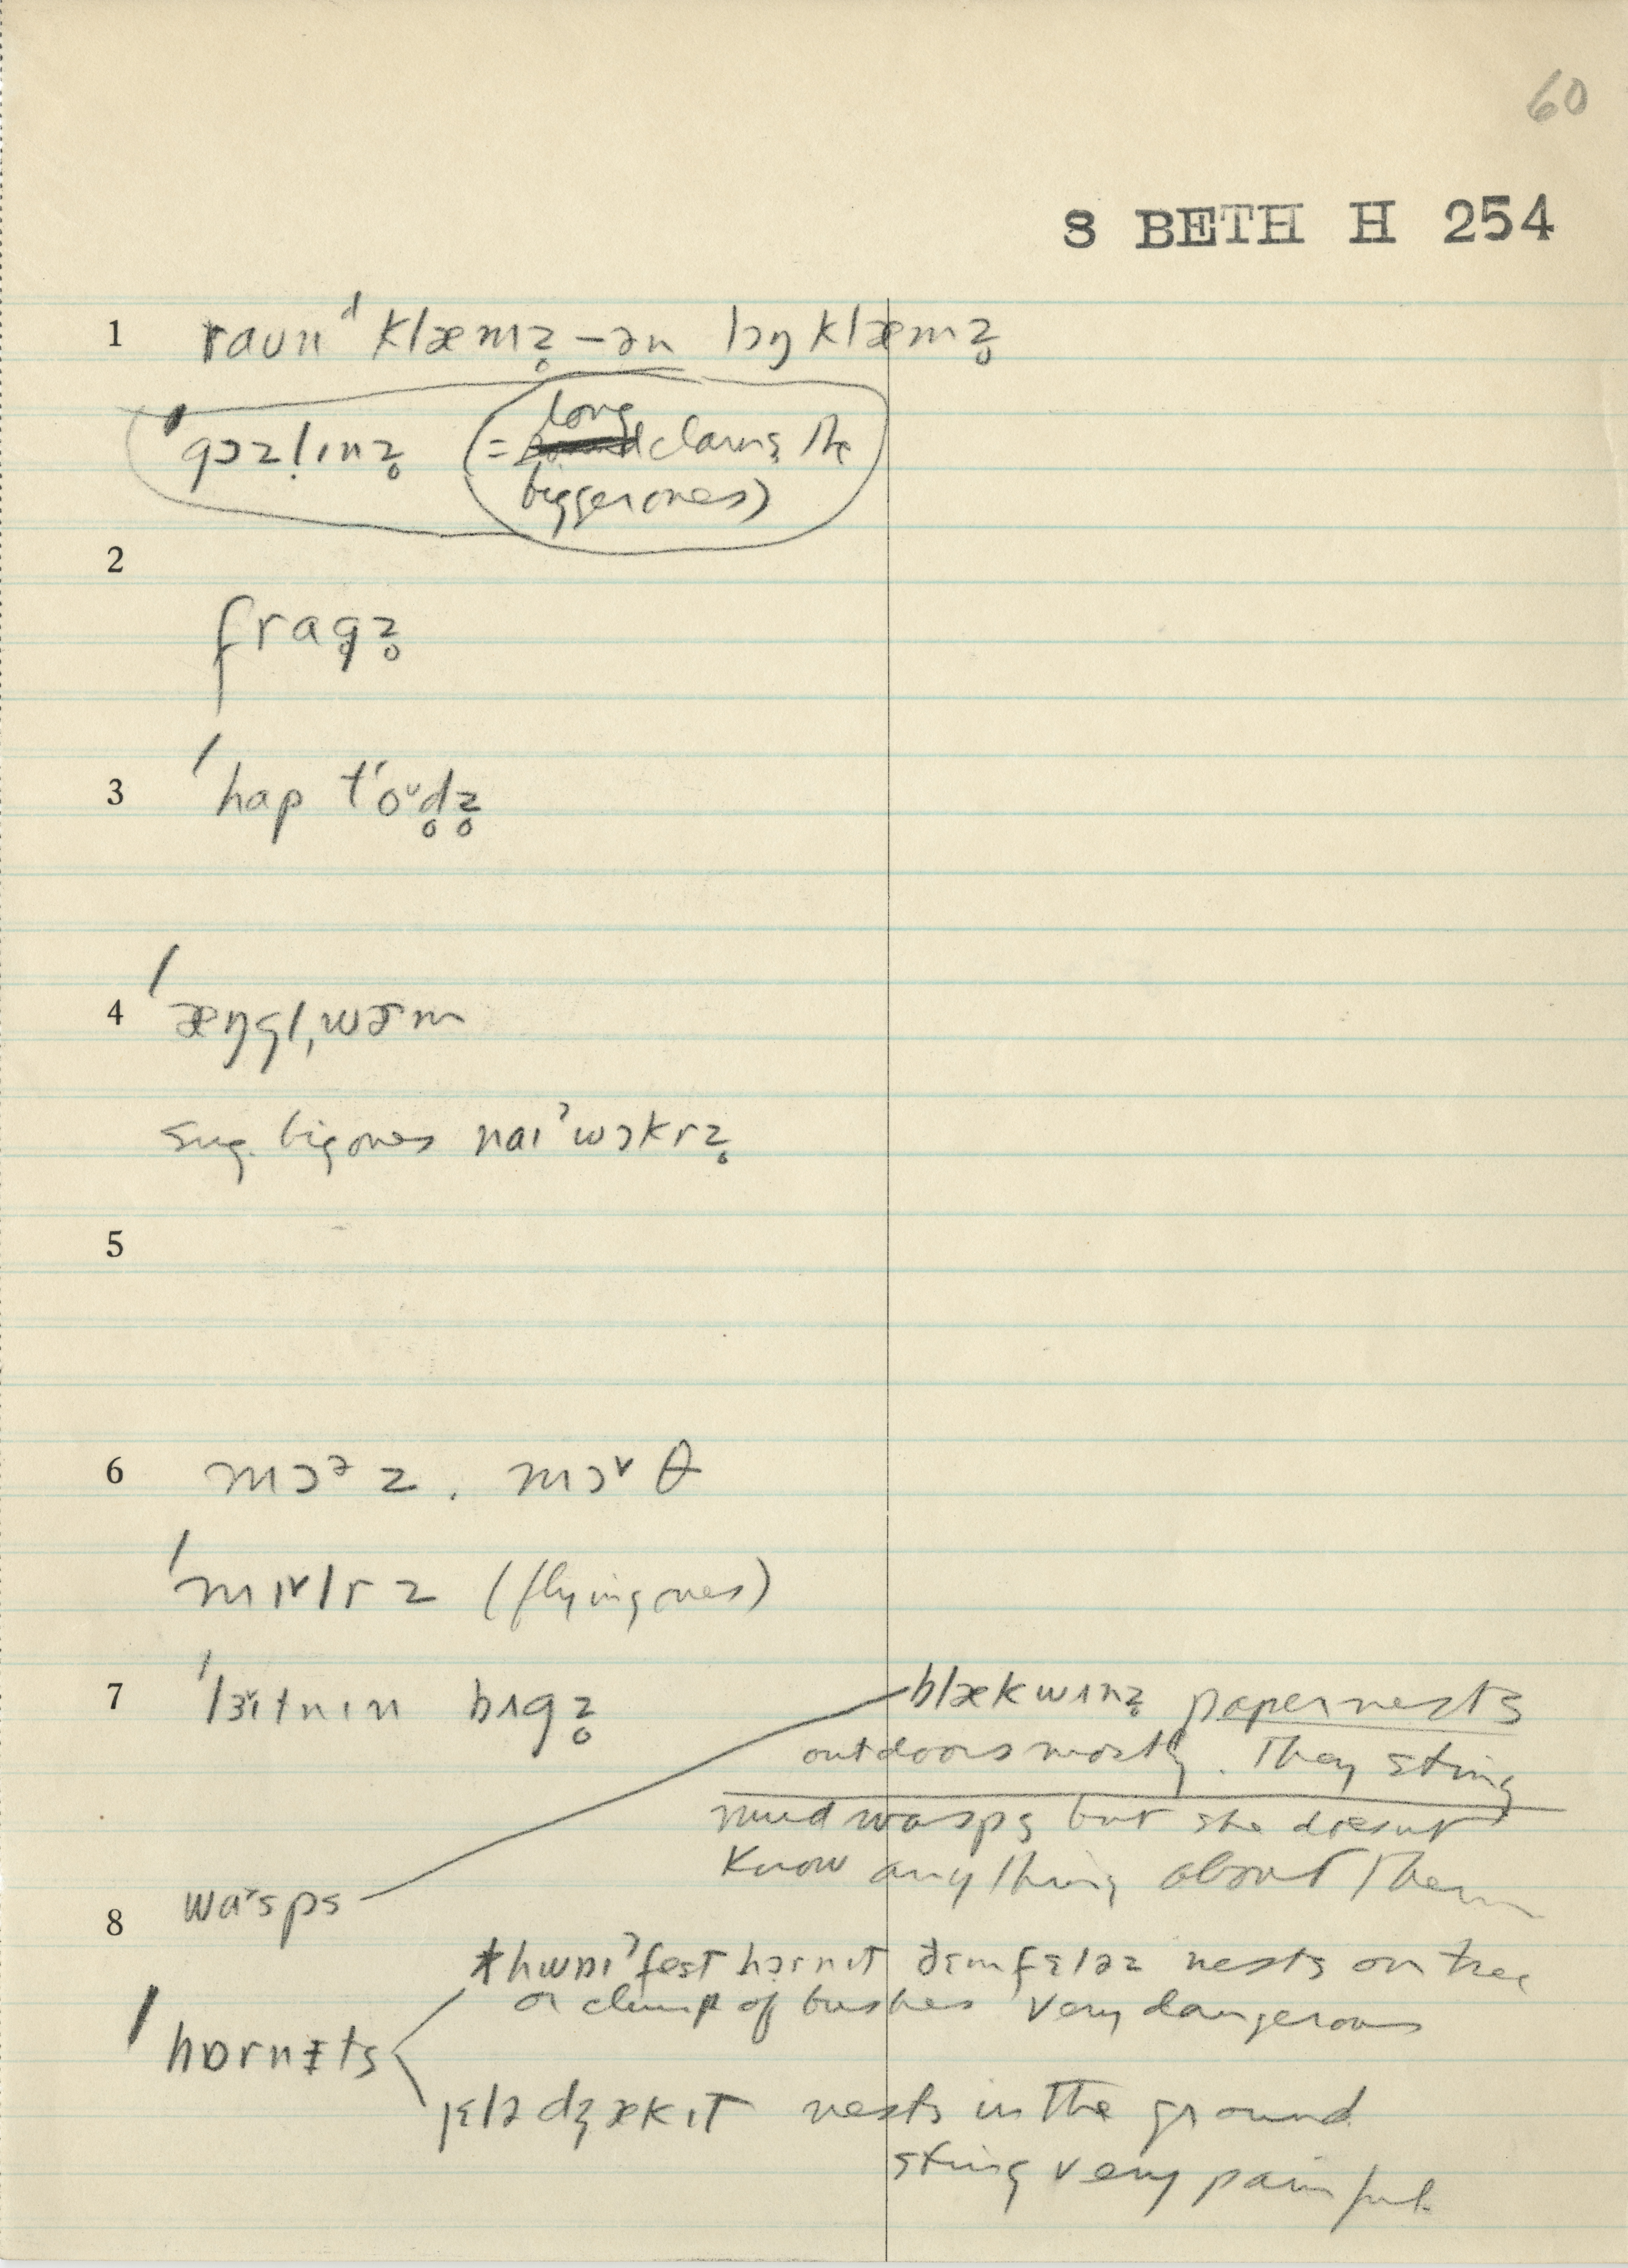 60
S BETH H 254
1 raʊnᵈ klæmz̥ – ən lɔŋ klæmz̥
ˈgɔzl̩ɪnz̥ (= long clams, the
bigger ones)
2
frag̥z̥
3 ˈhap tʻoᵛd̥z̥
4 ˈæŋgl̩wɚm
sug. big ones naɪˀwɔkrz̥
5
6 mɔᵊz. mɔ˅θ
ˈmɪ˅lrz (flying ones)
7 ˈlaɪtnɪn bʌgz̥ blækwʌnz̥ paper nests
outdoors mostly. They sting
mud wasps but she doesn't
know anything about them
wa˅sps
8 hwaɪˀfest hɔrnɪt ðɛmfɛləz nests on tree
or clump of bushes very dangerous
ˈhɒrnɨts
jɛlədʒækɪt nests in the ground
sting very painful